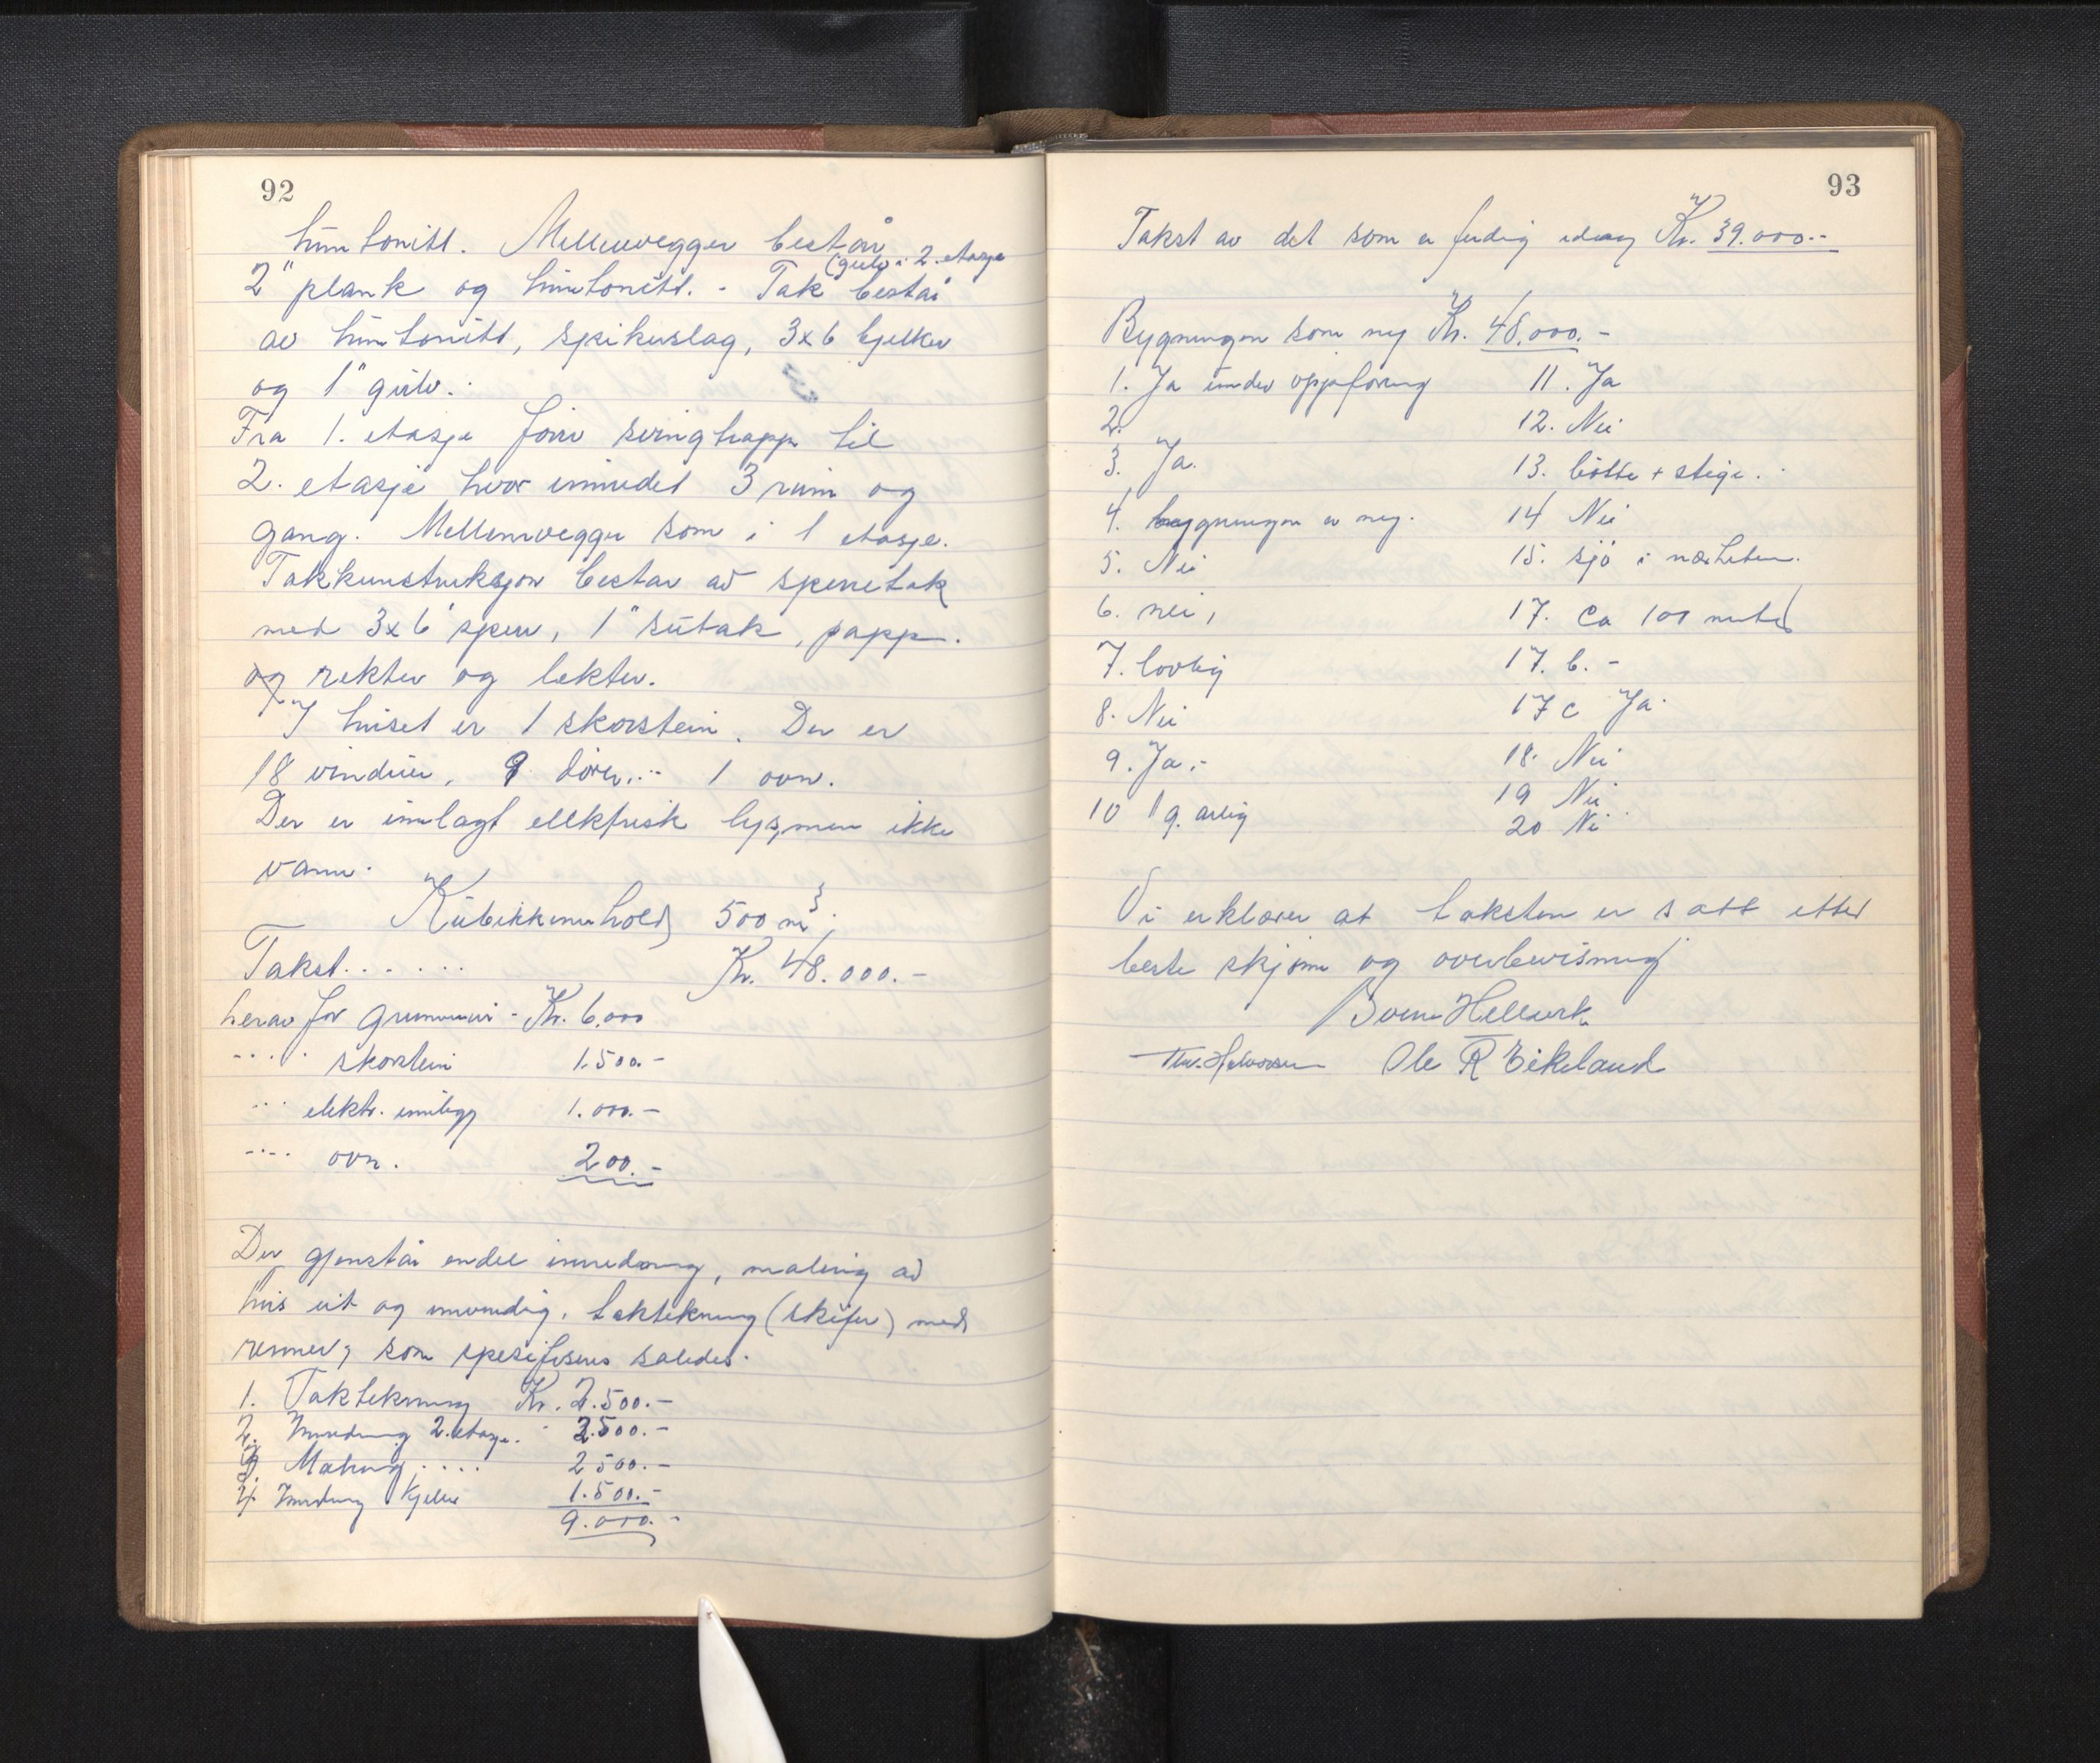 92
huntonitt. Mellemvegger består
(gulv i 2. etasje
2" plank og huntonitt. - Tak består
av huntonitt, spikerslag, 3x6 bjelker
og 1" gulv.
Fra 1. etasje fører svingtrapp til
2. etasje hvor innredet 3 rum og
gang. Mellemvegger som i 1 etasje.
Takkunstruksjon består av sperretak
med 3x6" sperr, 1" sutak, papp.
og rekter og lekter.
I huset er 1 skorstein. Der er
18 vinduer, 9 dører, 1 ovn.
Der er innlagt ellektrisk lys, men ikke
vann.
Kubikkinnhold 500 m³;
Takst...... Kr. 48.000.-
herav for grunnmur - Kr. 6.000
.... skorstein 1.500.-
... elektr. innlegg 1.000.-
.... ovn. 200.-
Der gjenstår endel innredning, maling av
hus ut og innvendig, taktekning (skifer) med
renner, som spesifiseres således.
1. Taktekning Kr. 2.500.-
2. Innredning 2. etasje. " 2.500.-
3. Maling.... 2500.-
4 Innredning kjeller 1.500.-
9.000.-
93
Takst av det som er ferdig idag Kr. 39.000.-
Bygningen som ny Kr. 48.000.-
1. Ja under oppføring
2.
3. Ja.
4. bygningen er ny.
5. Nei
6. nei,
7. lovlig
8. Nei
9. Ja.-
10 1 g. årlig
11. Ja
12. Nei
13. bøtte + stige.
14 Nei
15. sjø i nærheten.
17. Ca 100 meter
17. b. -
17 c Ja.
18. Nei
19 Nei
20 Nei
Vi erklærer at taksten er satt etter
beste skjønn og overbevisning
Hellverk
Thv. Halvorsen Ole R Eikeland